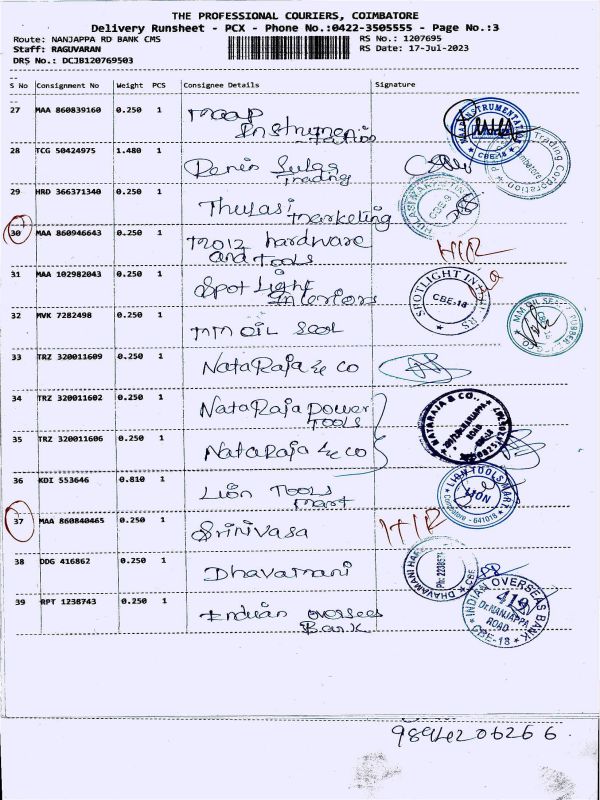 THE PROFESSIONAL COURIERS, COIMBATORE
Delivery Runsheet - PCX - Phone No.:0422-3505555 - Page No.:3
Route: NANJAPPA RD BANK CMS RS No.: 1207695
Staff: RAGUVARAN RS Date: 17-Jul-2023
DRS No.: DCJB120769503
S No Consignment No Weight PCS Consignee Details Signature
27 MAA 860839160 0.250 1 Maap
Instrumentation
MAAP INSTRUMENTATION
CBE-18
28 TCG 50424975 1.480 1 Trading
Trading Corporation
29 HRD 366371340 0.250 1 Thulasi
Marketing
CBE-18
30 MAA 860946643 0.250 1 Moiz hardware
and Tools
31 MAA 102982043 0.250 1 Spot Light
Interiors
SPOTLIGHT INTERIORS
CBE-18
32 MVK 7282498 0.250 1 MM OIL Seal
MM OIL SEAL
33 TRZ 320011609 0.250 1 NataRaja & Co
34 TRZ 320011602 0.250 1 NataRaja power
TOOLS
NATARAJA & CO.,
35 TRZ 320011606 0.250 1 NataRaja & Co
36 KDI 553646 0.810 1 Lion Tools
Mart
LION TOOLS MART
LION
Coimbatore - 641018
37 MAA 860840465 0.250 1 Srinivasa
38 DDG 416862 0.250 1 Dhavamani
DHAVAMANI
39 RPT 1238743 0.250 1 Indian overseas
Bank
INDIAN OVERSEAS BANK
419
Dr.NANJAPPA
ROAD
CBE-18